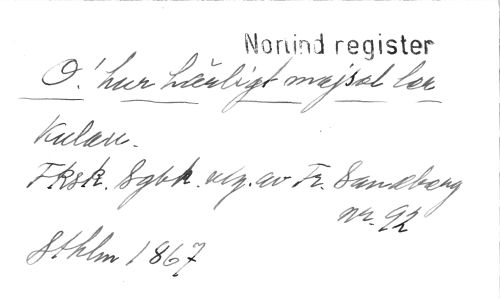 Norlind register
O! hur härligt majsol ler
Kulau.
Fksk. Sgbk. utg. av Fr. Sandberg
nr. 92
Sthlm 1867